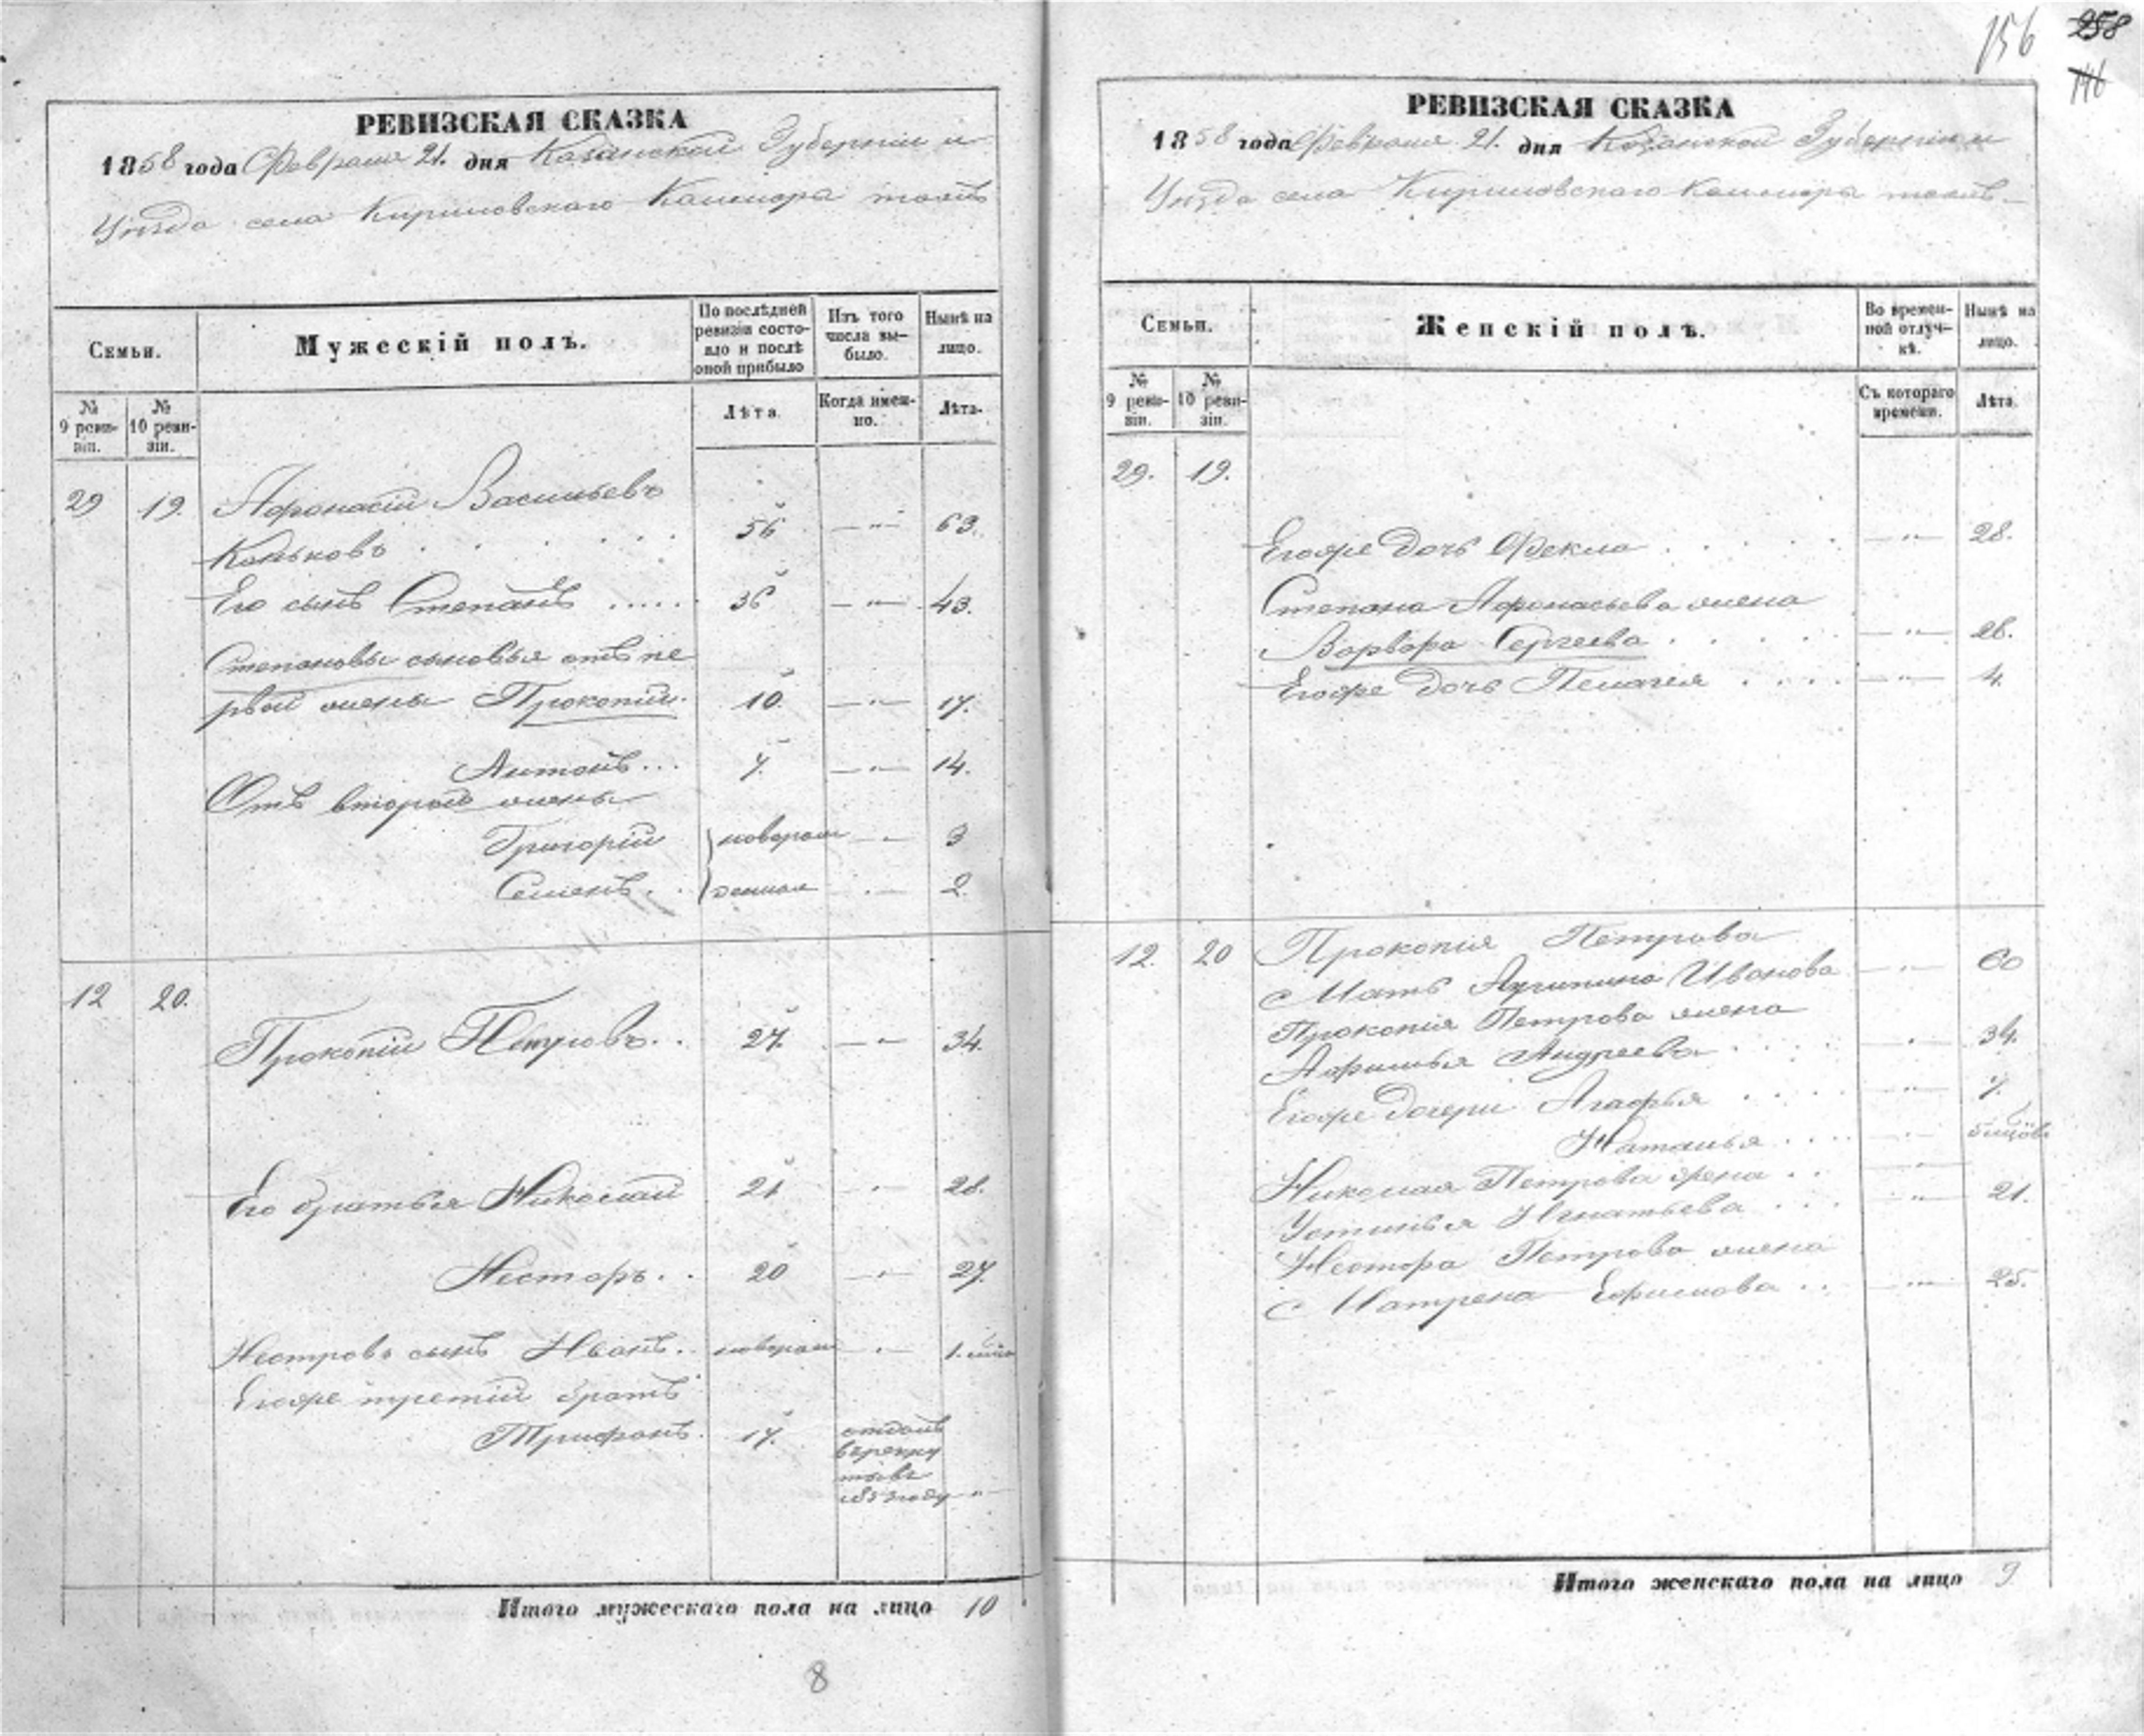 РЕВИЗСКАЯ СКАЗКА
1858 года Февраля 21. дня Казанской Губерніи и
Уѣзда села Кириловскаго
Семьи.
Мужескій полъ.
По послѣдней ревизіи состо-
яло и послѣ
оной прибыло
Изъ того
числа вы-
было.
Нынѣ на
лицо.
№
9 реви-
зіи.
№
10 реви-
зіи.
Лѣта.
Когда имен-
но.
Лѣта.
29 19. Афонасій Васильевъ
Коньковъ . . . . . 56 — " — 63.
Его сынъ Степанъ ..... 36 — " — 43.
Степановы сыновья отъ пе
рвой жены Прокопій. 10 — " — 17.
Антонъ... 7. — " — 14.
Отъ второй жены
Григорій новорож — " — 3
Семенъ. . денные " — 2
12 20.
Прокопій Петровъ. . 27. — " — 34.
Его братья Николай 21 " 28.
Несторъ. . 20 — " — 27.
Нестровъ сынъ Иванъ. новорож " 1.
Егоже третій братъ
Трифонъ. 17. отданъ
въ рекру
ты въ
году — " —
Итого мужескаго пола на лицо 10
8
156 258
146
РЕВИЗСКАЯ СКАЗКА
1858 года Февраля 21. дня Казанской Губерніи и
Уѣзда села Кириловскаго
Семьи.
Женскій полъ.
Во времен-
ной отлуч-
кѣ.
Нынѣ на
лицо.
№
9 реви-
зіи.
№
10 реви-
зіи.
Съ котораго
времени.
Лѣта.
29. 19.
Егоже дочь Фекла . . . . . — " — 28.
Степана Афонасьева жена
Варвара Сергеева . . . . . — " — 28.
Егоже дочь Пелагея . . . . — " — 4.
12. 20 Прокопія Петрова
Мать Акулина Иванова — " — 60
Прокопія Петрова жена
Афимья Андреева . . . . " — 34.
Егоже дочери Агафья . . . . — " — 7.
Наталья . . . . — " —
Николая Петрова жена . .
Устинья Игнатьева . . . " — 21.
Нестора Петрова жена
Матрена Ефимова . . — " — 25.
Итого женскаго пола на лицо 9